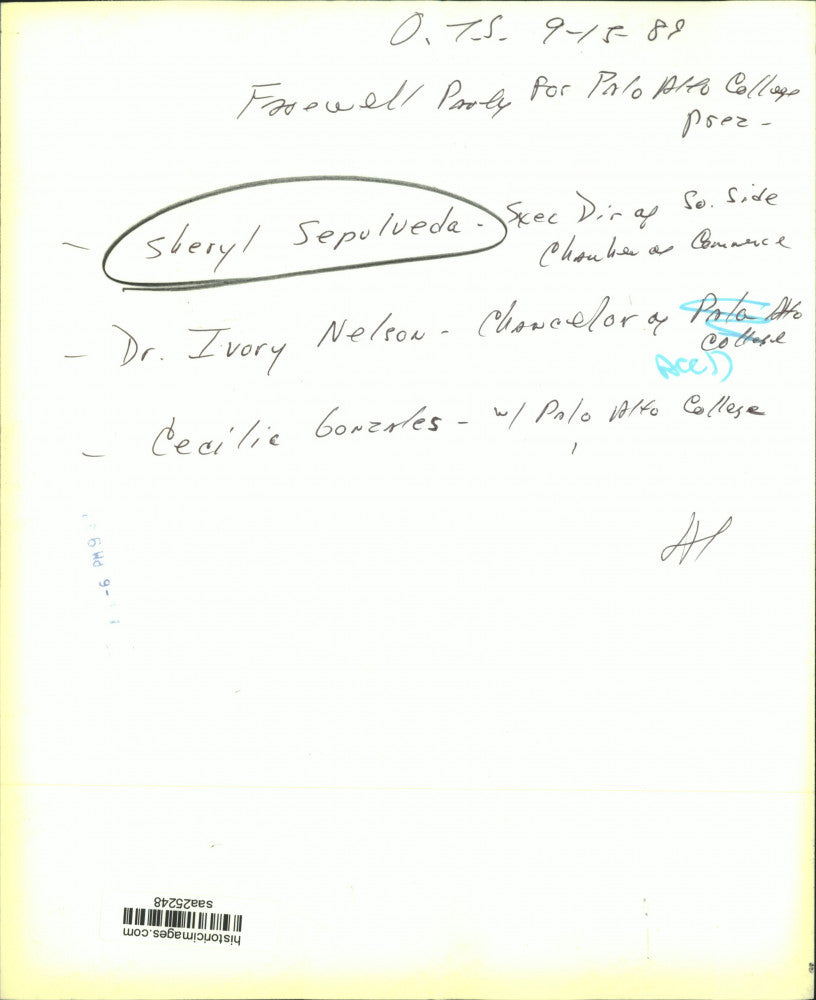 O.T.S. 9-15-88
Farewell Party for Palo Alto College
Prez -
- Sheryl Sepulveda - Exec Dir of So. Side
Chamber of Commerce
- Dr. Ivory Nelson - Chancelor of Palo Alto
College
ACCD
- Cecilia Gonzales - w/ Palo Alto College
-6 PM 9
historicimages.com
saa25248